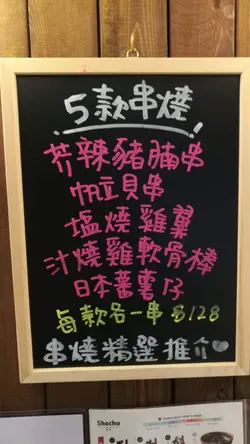 5款串燒!
芥辣豬腩串
帆立貝串
塩燒雞翼
汁燒雞軟骨棒
日本蕃薯仔
每款各一串 $128
串燒精選推介♡
Shochu